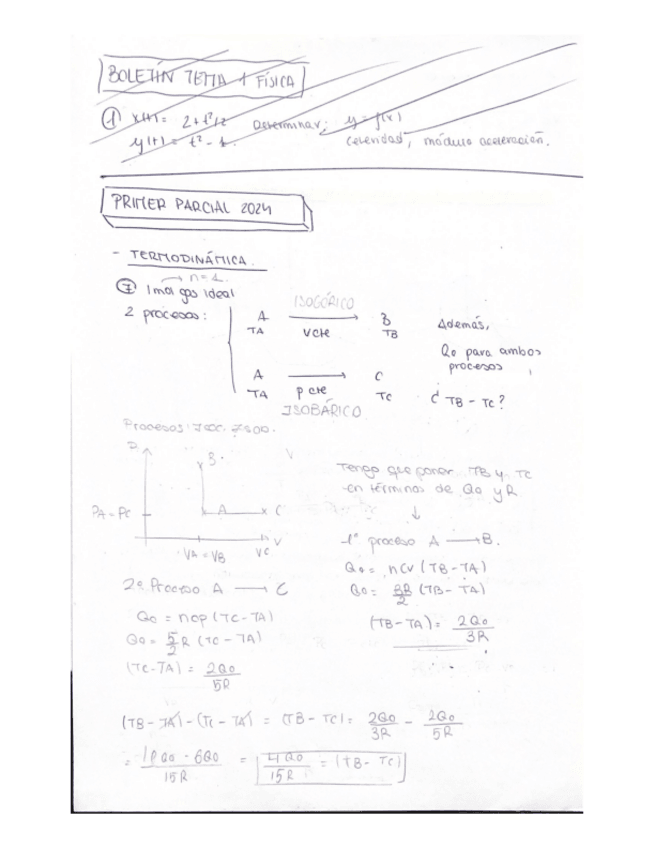 BOLETÍN TEMA 1 FÍSICA
① x(t) = 2 + t²/2 Determinar: y = f(x)
y(t) = t² - 1. celeridad, módulo aceleración.
PRIMER PARCIAL 2024
- TERMODINÁMICA.
→ n=1.
⑦ 1 mol gas ideal
2 procesos:
ISOCÓRICO
A → B
TA Vcte TB
A → C
TA p cte TC
ISOBÁRICO
Además,
Qo para ambos
procesos
¿ TB - TC?
Procesos:
P
B
PA = PC
A C
VA = VB VC V
Tengo que poner TB y TC
en términos de Qo y R
↓
1º proceso A → B.
Qo = nCv (TB - TA)
Qo = 3R/2 (TB - TA)
(TB - TA) = 2Qo/3R
2º Proceso A → C
Qo = ncp (TC - TA)
Qo = 5/2 R (TC - TA)
(TC - TA) = 2Qo/5R
(TB - TA) - (TC - TA) = (TB - TC) = 2Qo/3R - 2Qo/5R
= 10Qo - 6Qo/15R = 4Qo/15R = (TB - TC)